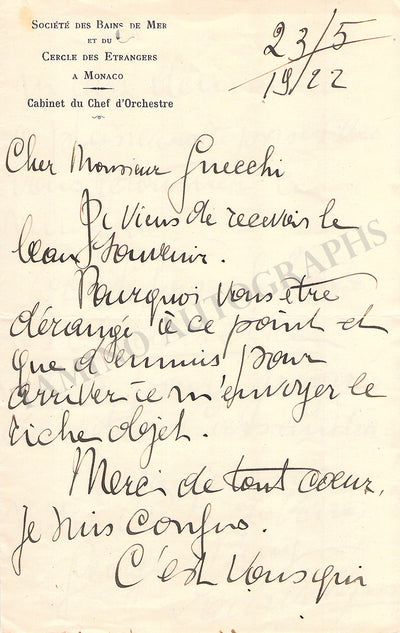 SOCIÉTÉ DES BAINS DE MER
ET DU
CERCLE DES ETRANGERS
A MONACO
Cabinet du Chef d'Orchestre
23/5
1922
Cher Monsieur Gnecchi
Je viens de recevoir le
beau souvenir.
Pourquoi vous être
dérangé à ce point et
que d'ennuis pour
arriver à m'envoyer le
riche objet.
Merci de tout coeur.
Je suis confus.
C'est vous qui
TAMINO AUTOGRAPHS